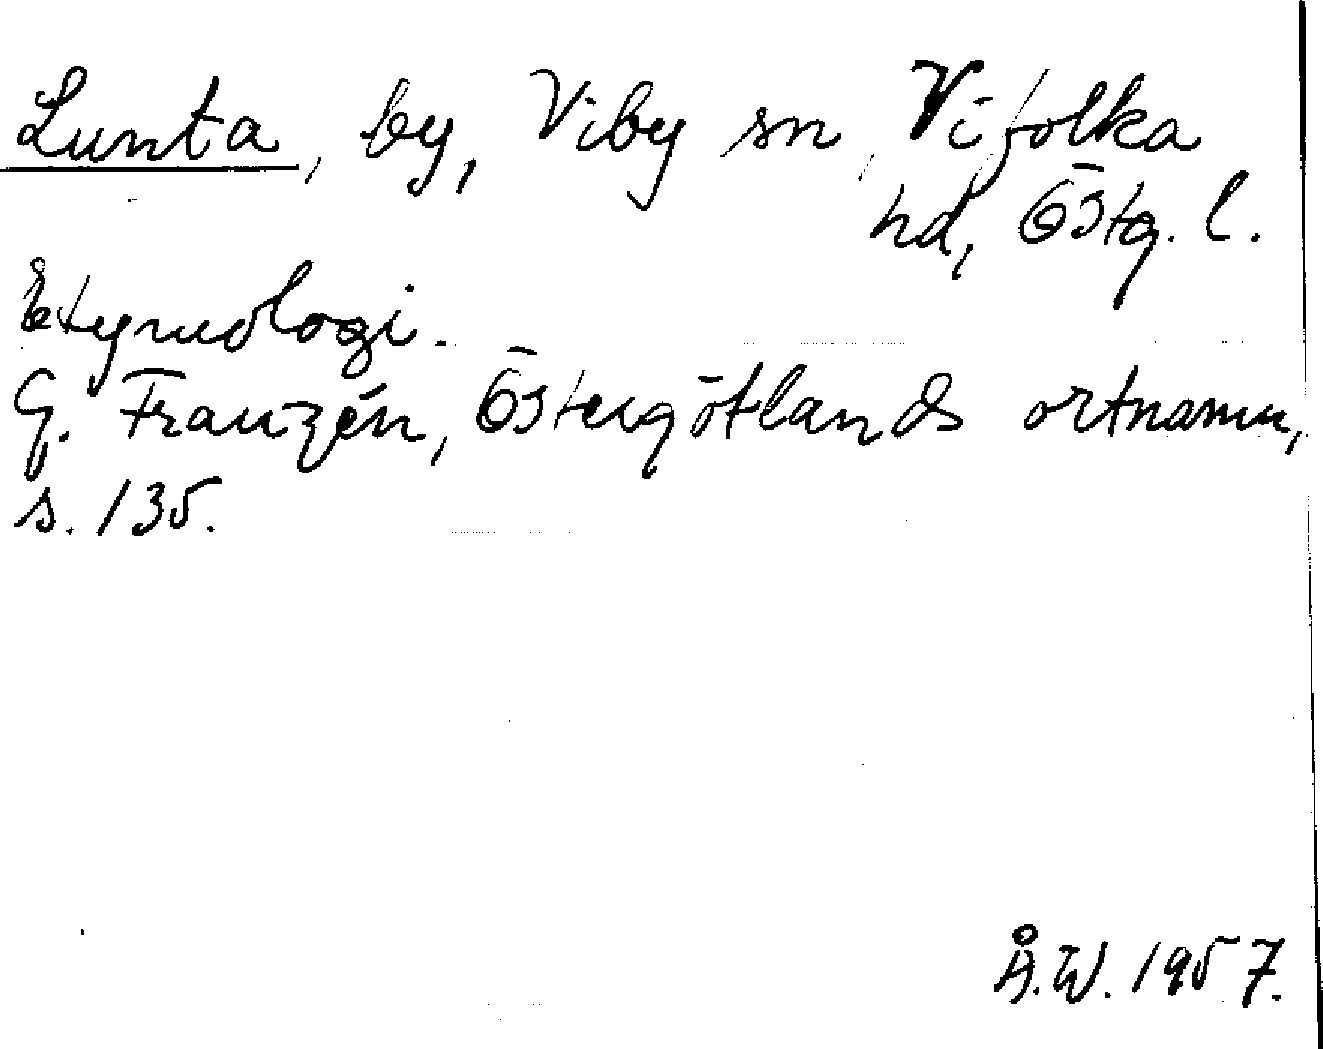 Lunta, by, Viby sn, Vifolka
hd, Östg. l.
Etymologi.
G. Franzén, Östergötlands ortnamn,
s. 135.
Å.W. 1957.